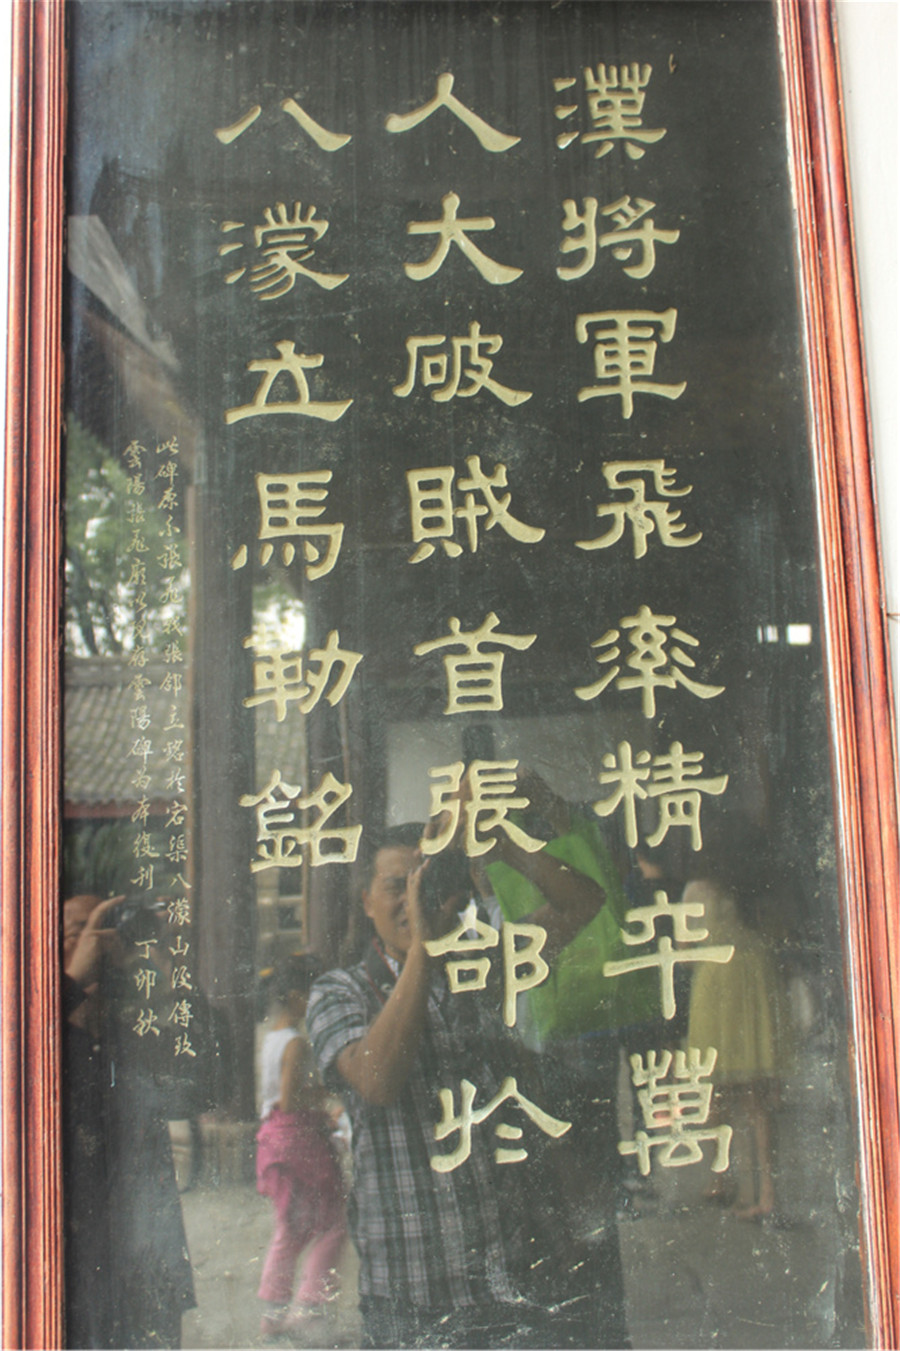 漢將軍飛率精卒萬
人大破賊首張郃於
八濛立馬勒銘
此碑原系張飛戰張郃立銘於宕渠八濛山後傳玖
雲陽張飛廟存雲陽碑為本復刊 丁卯秋